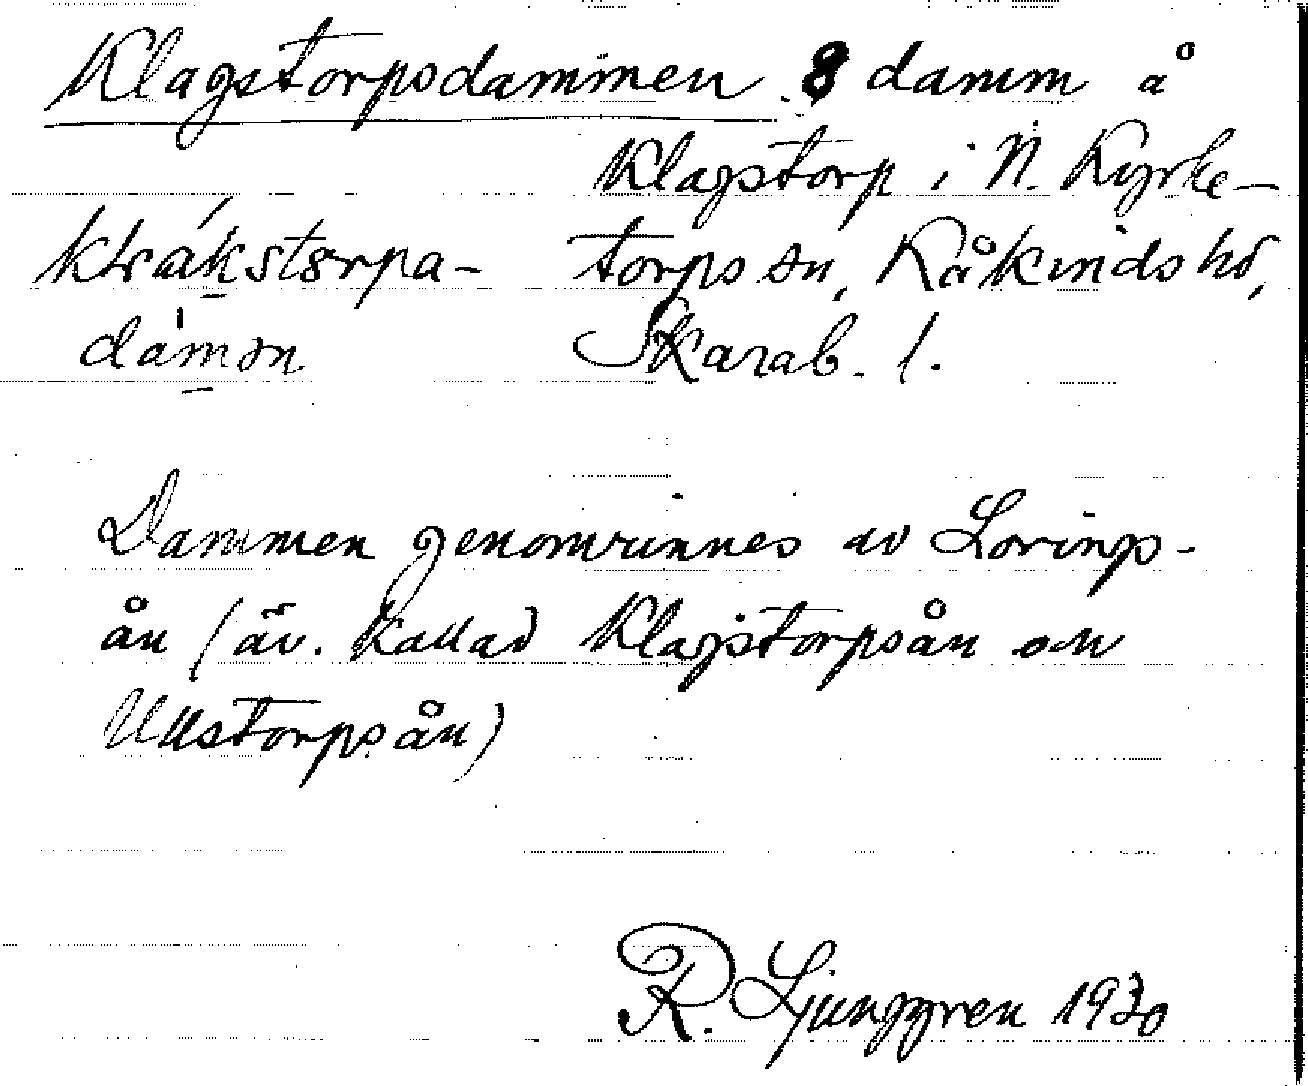 Klagstorpsdammen. 8 damm å
Klagstorp i N. Kyrke-
torps sn, Kåkinds hd,
Skarab. l.
dämən
Dammen genomrinnes av Lovings-
ån (äv. kallad Klagstorpsån och
Ullstorpsån)
R. Ljunggren 1930